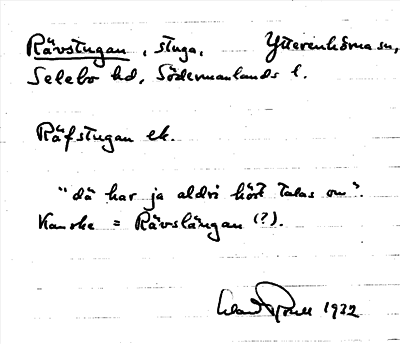 Rävstugan, stuga, Ytterenhörna sn,
Selebo hd, Södermanlands l.
Räfstugan ek.
"dä har ja aldri hört talas om".
Kanske = Rävslängan (?).
1932